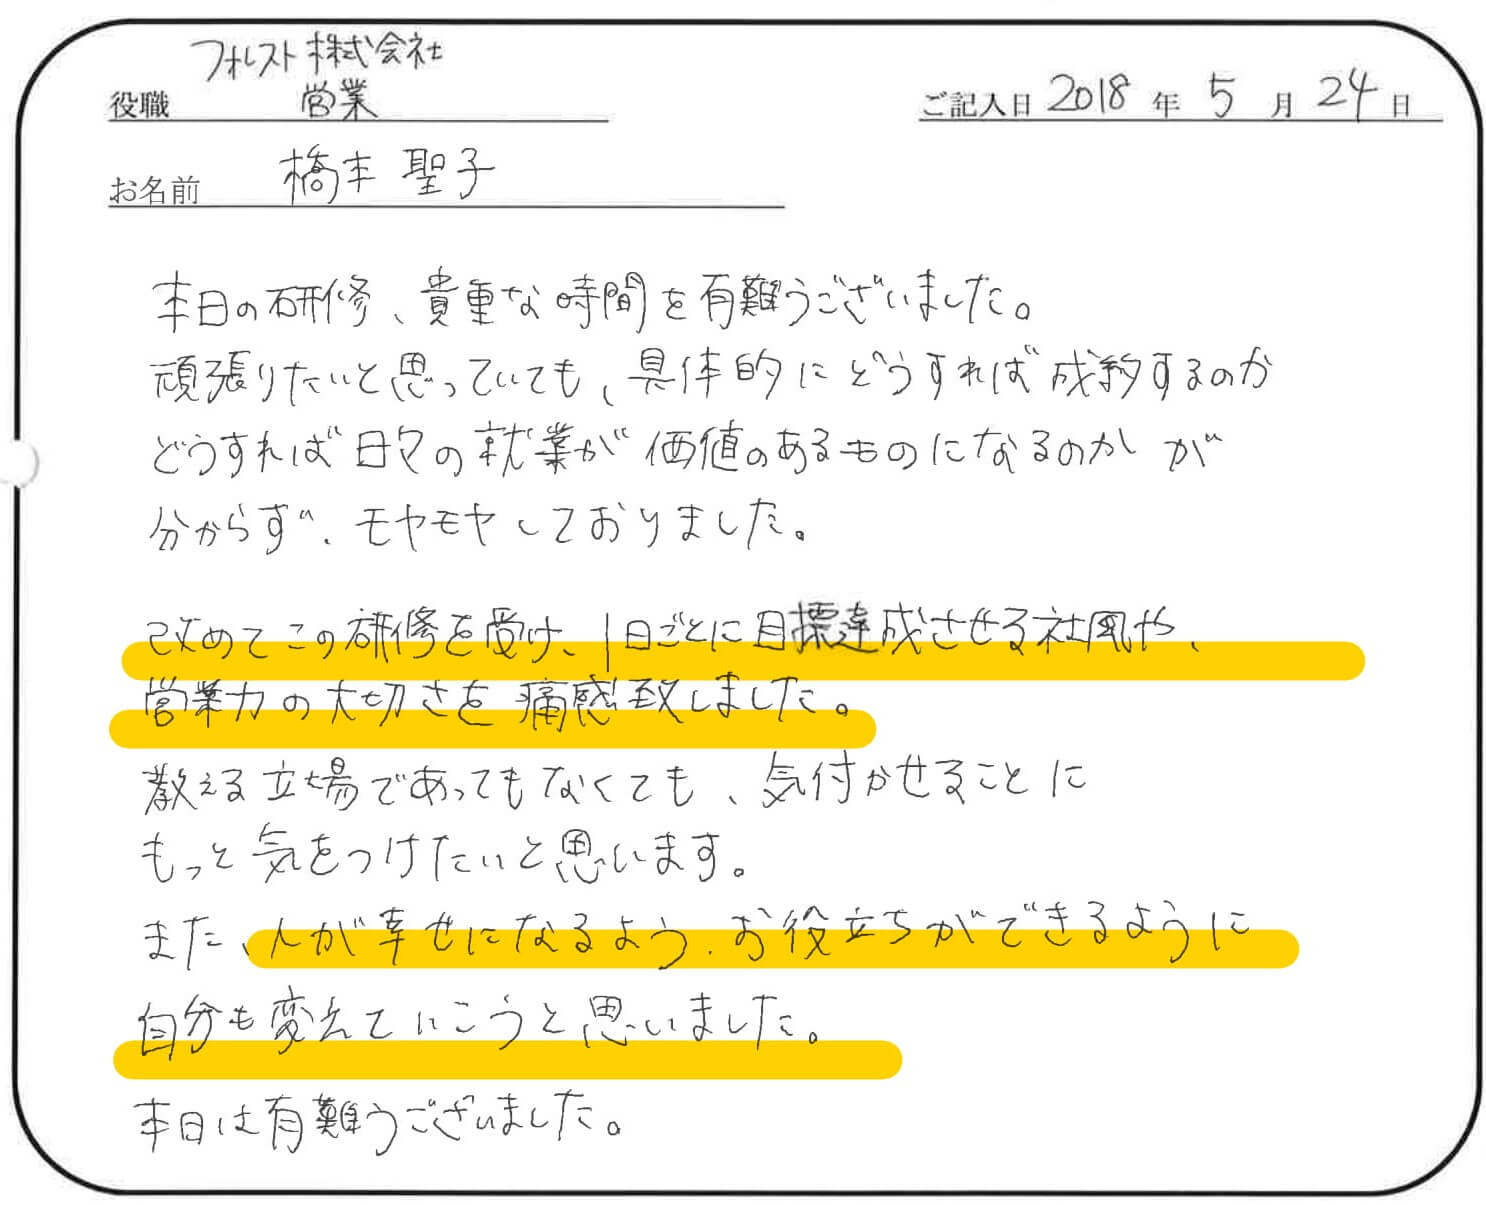 フォレスト株式会社
役職 営業
ご記入日 2018 年 5 月 24 日
お名前 橋本 聖子
本日の研修、貴重な時間を有難うございました。
頑張りたいと思っていても、具体的にどうすれば成約するのか
どうすれば日々の就業が価値のあるものになるのかが
分からず、モヤモヤしておりました。
改めてこの研修を受け、1日ごとに目標達成させる社風や、
営業力の大切さを痛感致しました。
教える立場であってもなくても、気付かせることに
もっと気をつけたいと思います。
また、人が幸せになるよう、お役立ちができるように
自分も変えていこうと思いました。
本日は有難うございました。